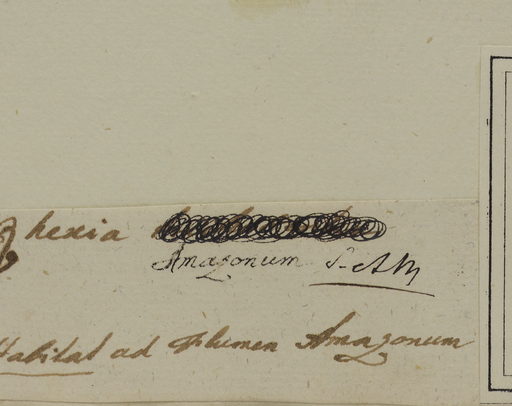 Rhexia
Amazonum S. AM
Habitat ad Flumen Amazonum